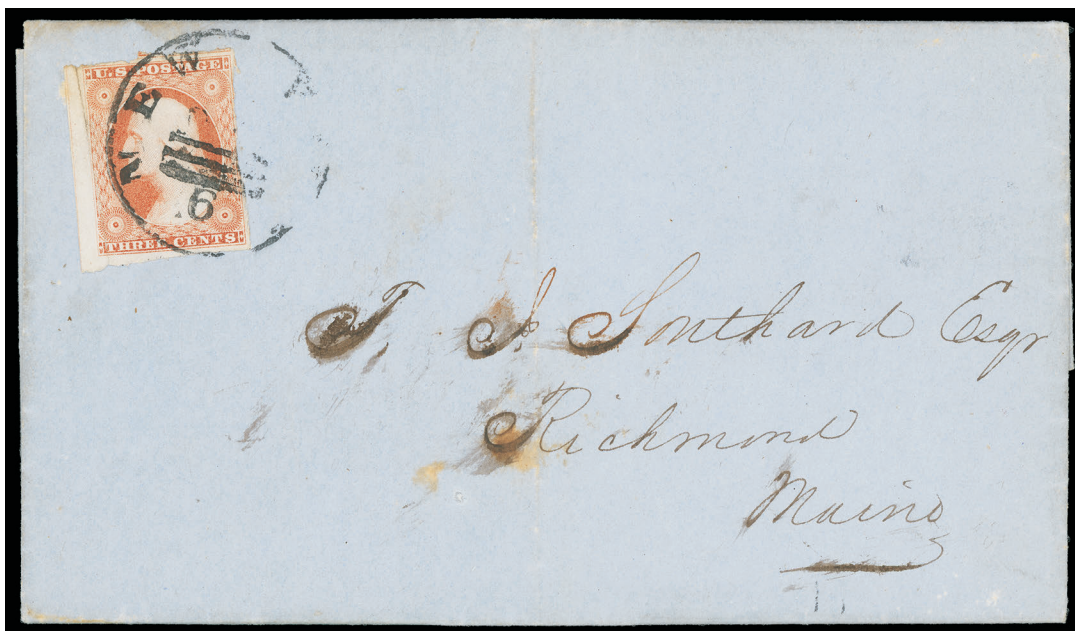 U.S. POSTAGE
NEW
6
THREE CENTS
T J Southard Esqr
Richmond
Maine